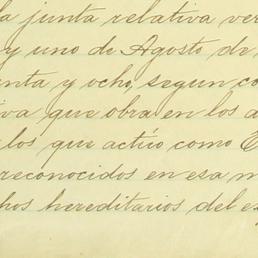 la junta relativa ver
y uno de Agosto de
enta y ocho, segun co
iva que obra en los a
los que actúo como E
reconocidos en esa m
hos hereditarios del ex